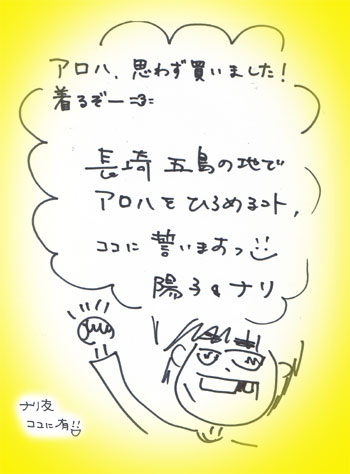 アロハ、思わず買いました!
着るぞー
長崎 五島の地で
アロハを ひろめるコト,
ココに 誓いまあっ!!
陽子&ナリ
ナリ友
ココに有!!